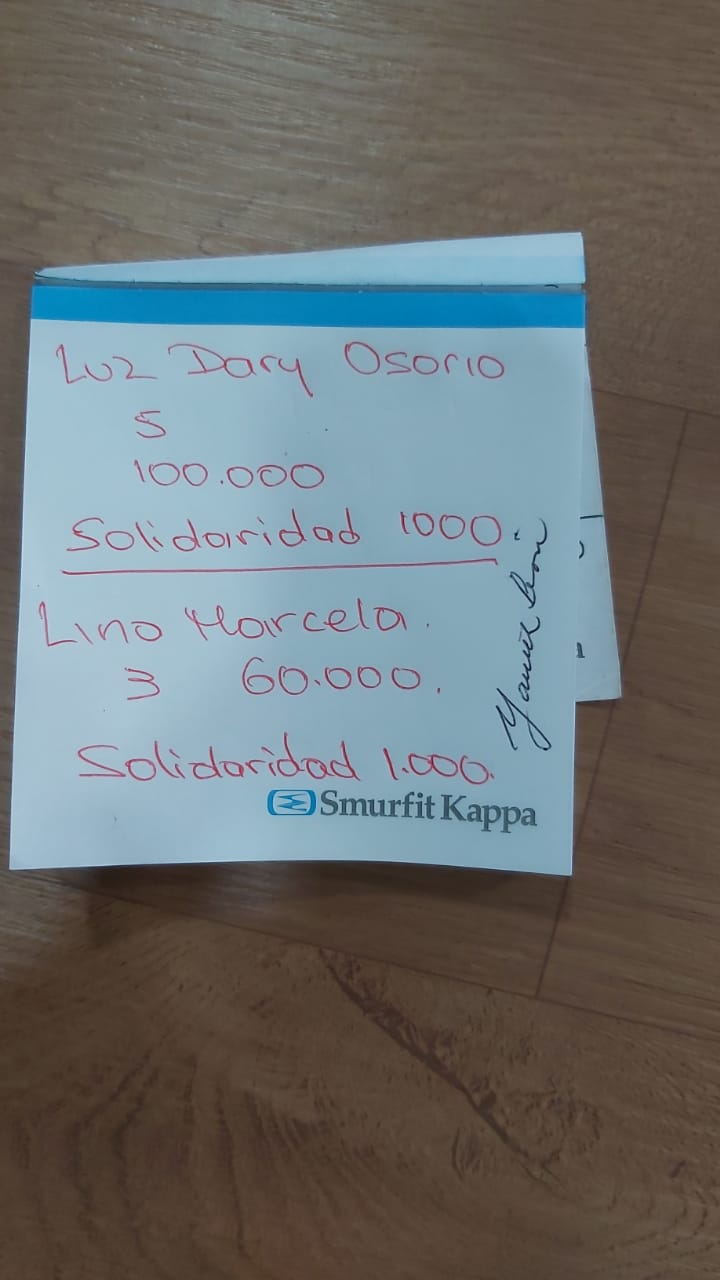 Luz Dary Osorio
5
100.000
Solidaridad 1000
Lina Marcela.
3 60.000.
Solidaridad 1.000.
Smurfit Kappa